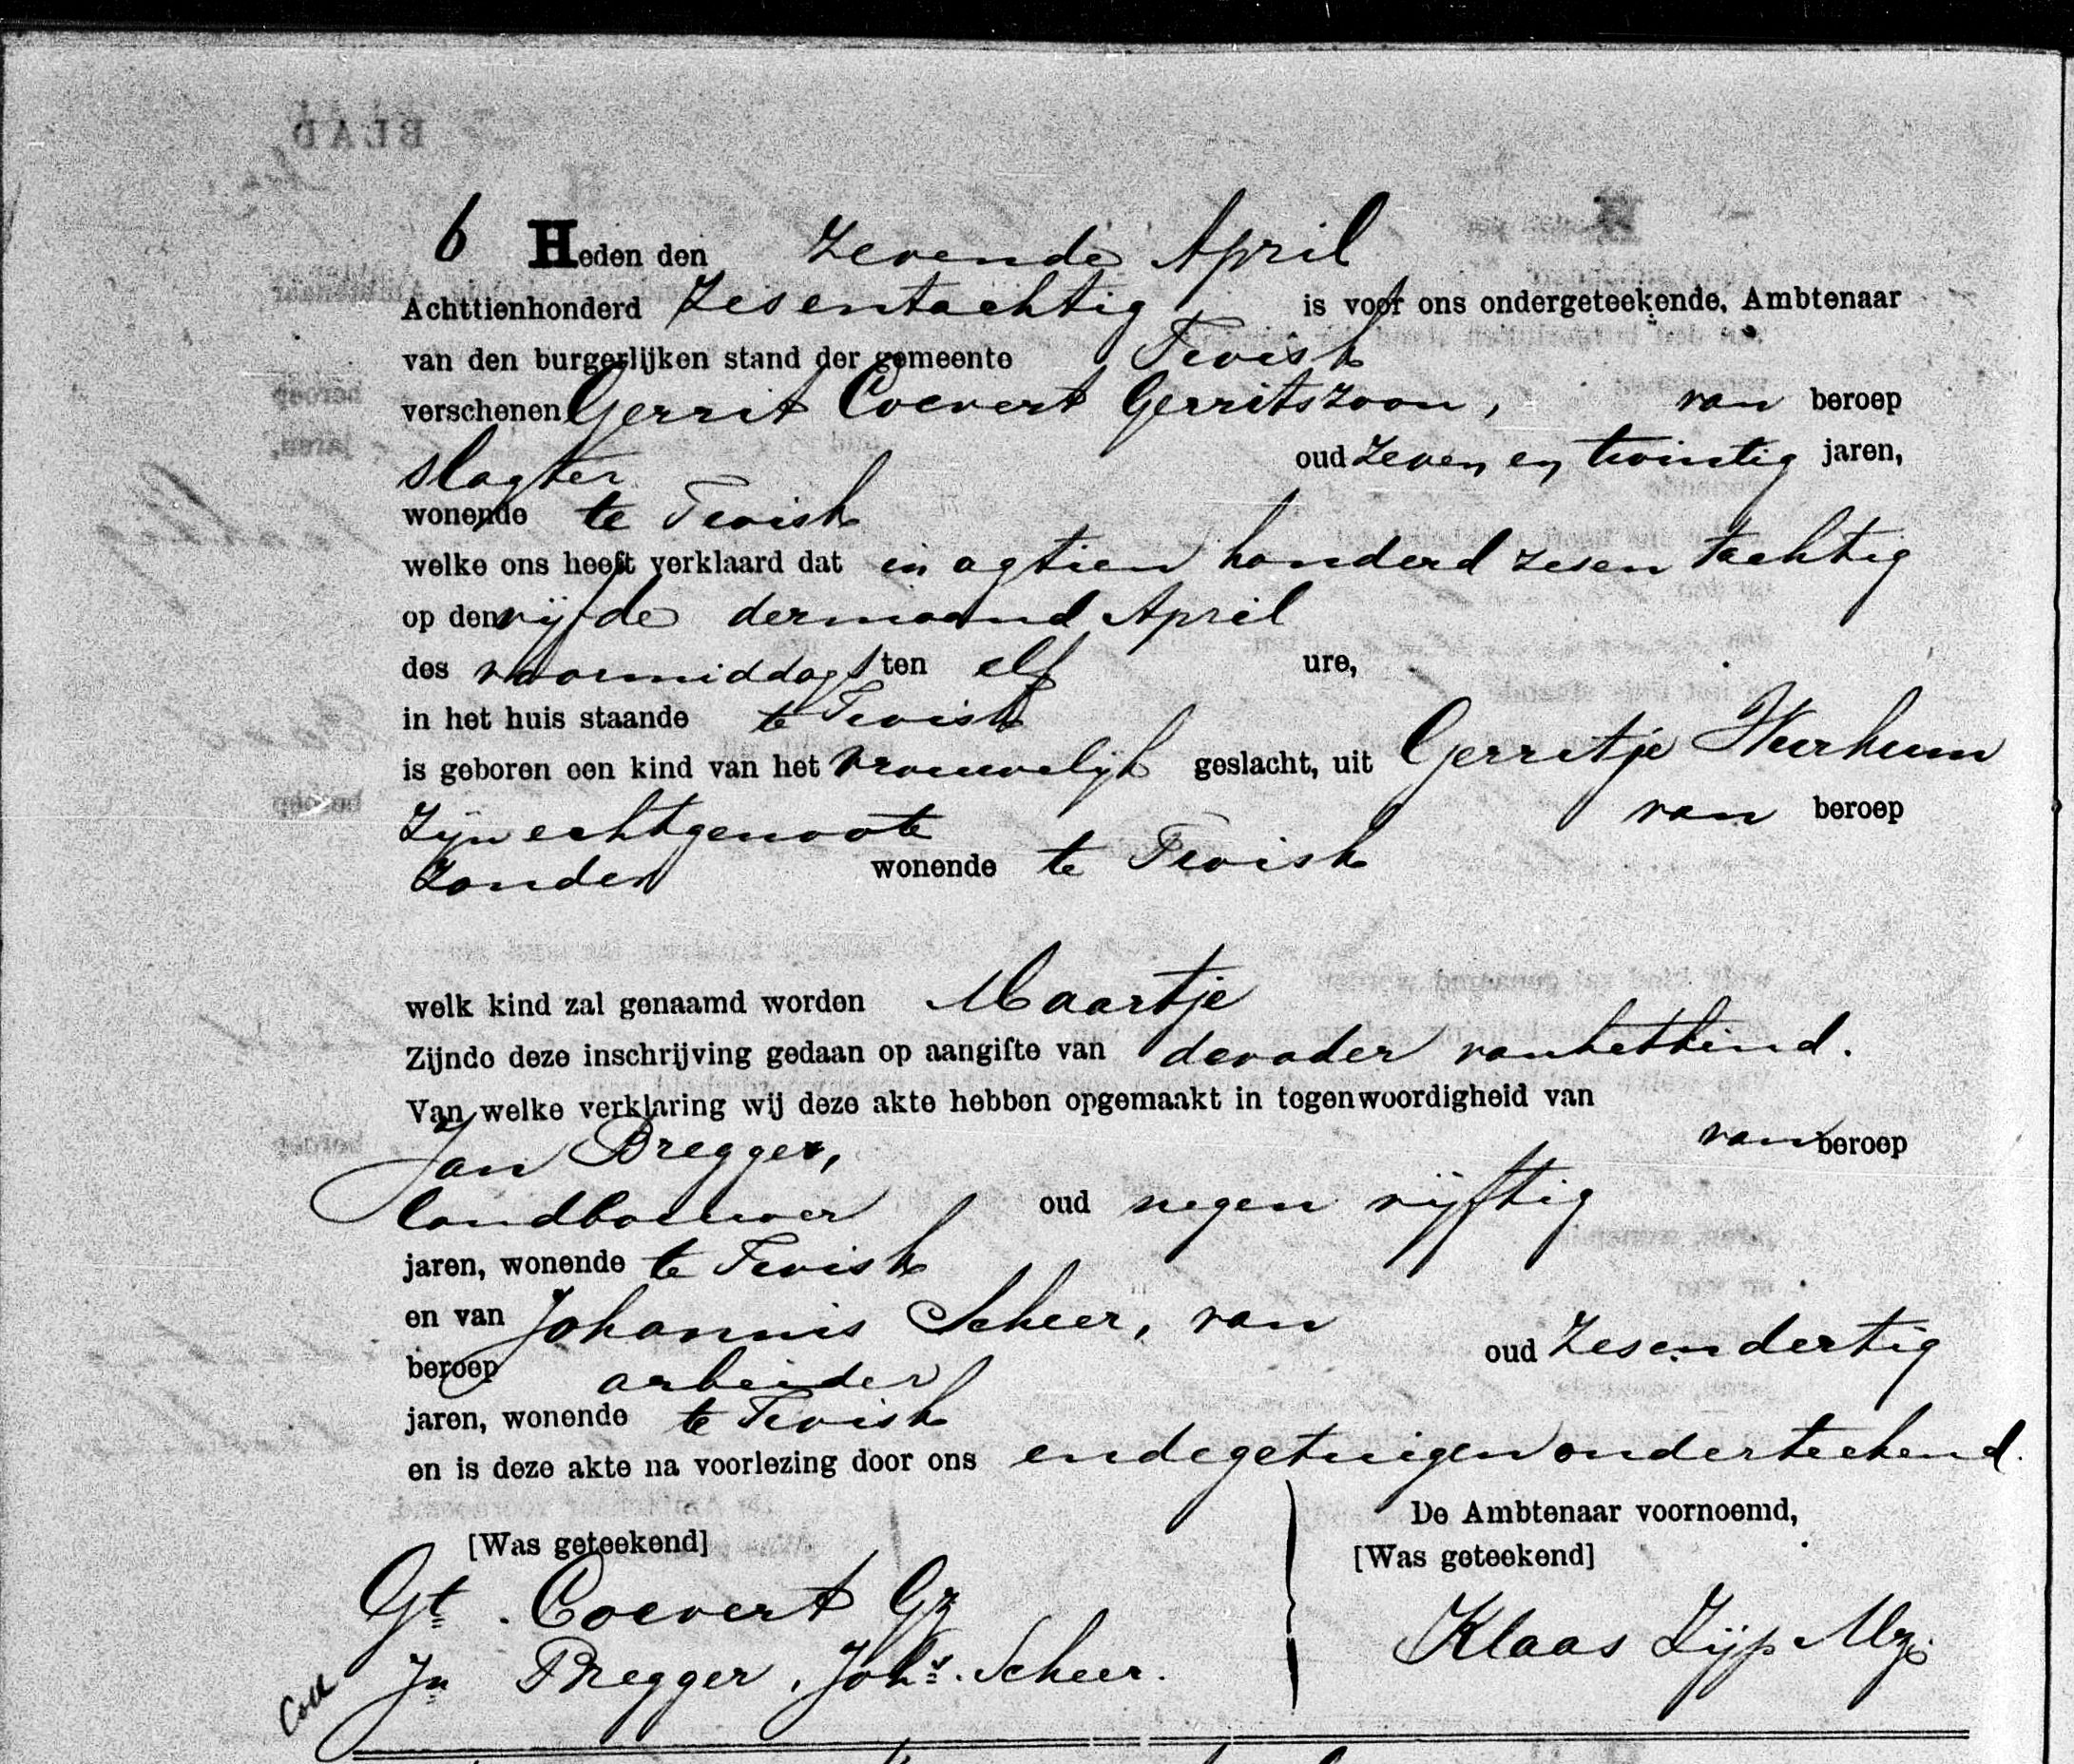 6 Heden den zevende April
Achttienhonderd Zesentachtig is voor ons ondergeteekende, Ambtenaar
van den burgerlijken stand der gemeente Twisk
verschenen Gerrit Coevert Gerritszoon, van beroep
slagter oud zeven en twintig jaren,
wonende te Twisk
welke ons heeft verklaard dat in agtien honderd zesen tachtig
op den vijfde der maand April
des voormiddags ten elf ure,
in het huis staande te Twisk
is geboren een kind van het vrouwelijk geslacht, uit Gerritje
Zijn echtgenoote van beroep
zonder wonende te Twisk
welk kind zal genaamd worden Maartje
Zijnde deze inschrijving gedaan op aangifte van de vader van het kind.
Van welke verklaring wij deze akte hebben opgemaakt in tegenwoordigheid van
Jan Bregger, van beroep
landbouwer oud negen vijftig
jaren, wonende te Twisk
en van Johannis Scheer, van
beroep arbeider oud Zesendertig
jaren, wonende te Twisk
en is deze akte na voorlezing door ons en de getuigen onderteekend.
De Ambtenaar voornoemd,
[Was geteekend] [Was geteekend]
Gt. Coevert Gz
Klaas Zijp Mz.
Jn Bregger, Johs. Scheer.
Coll
BLAD